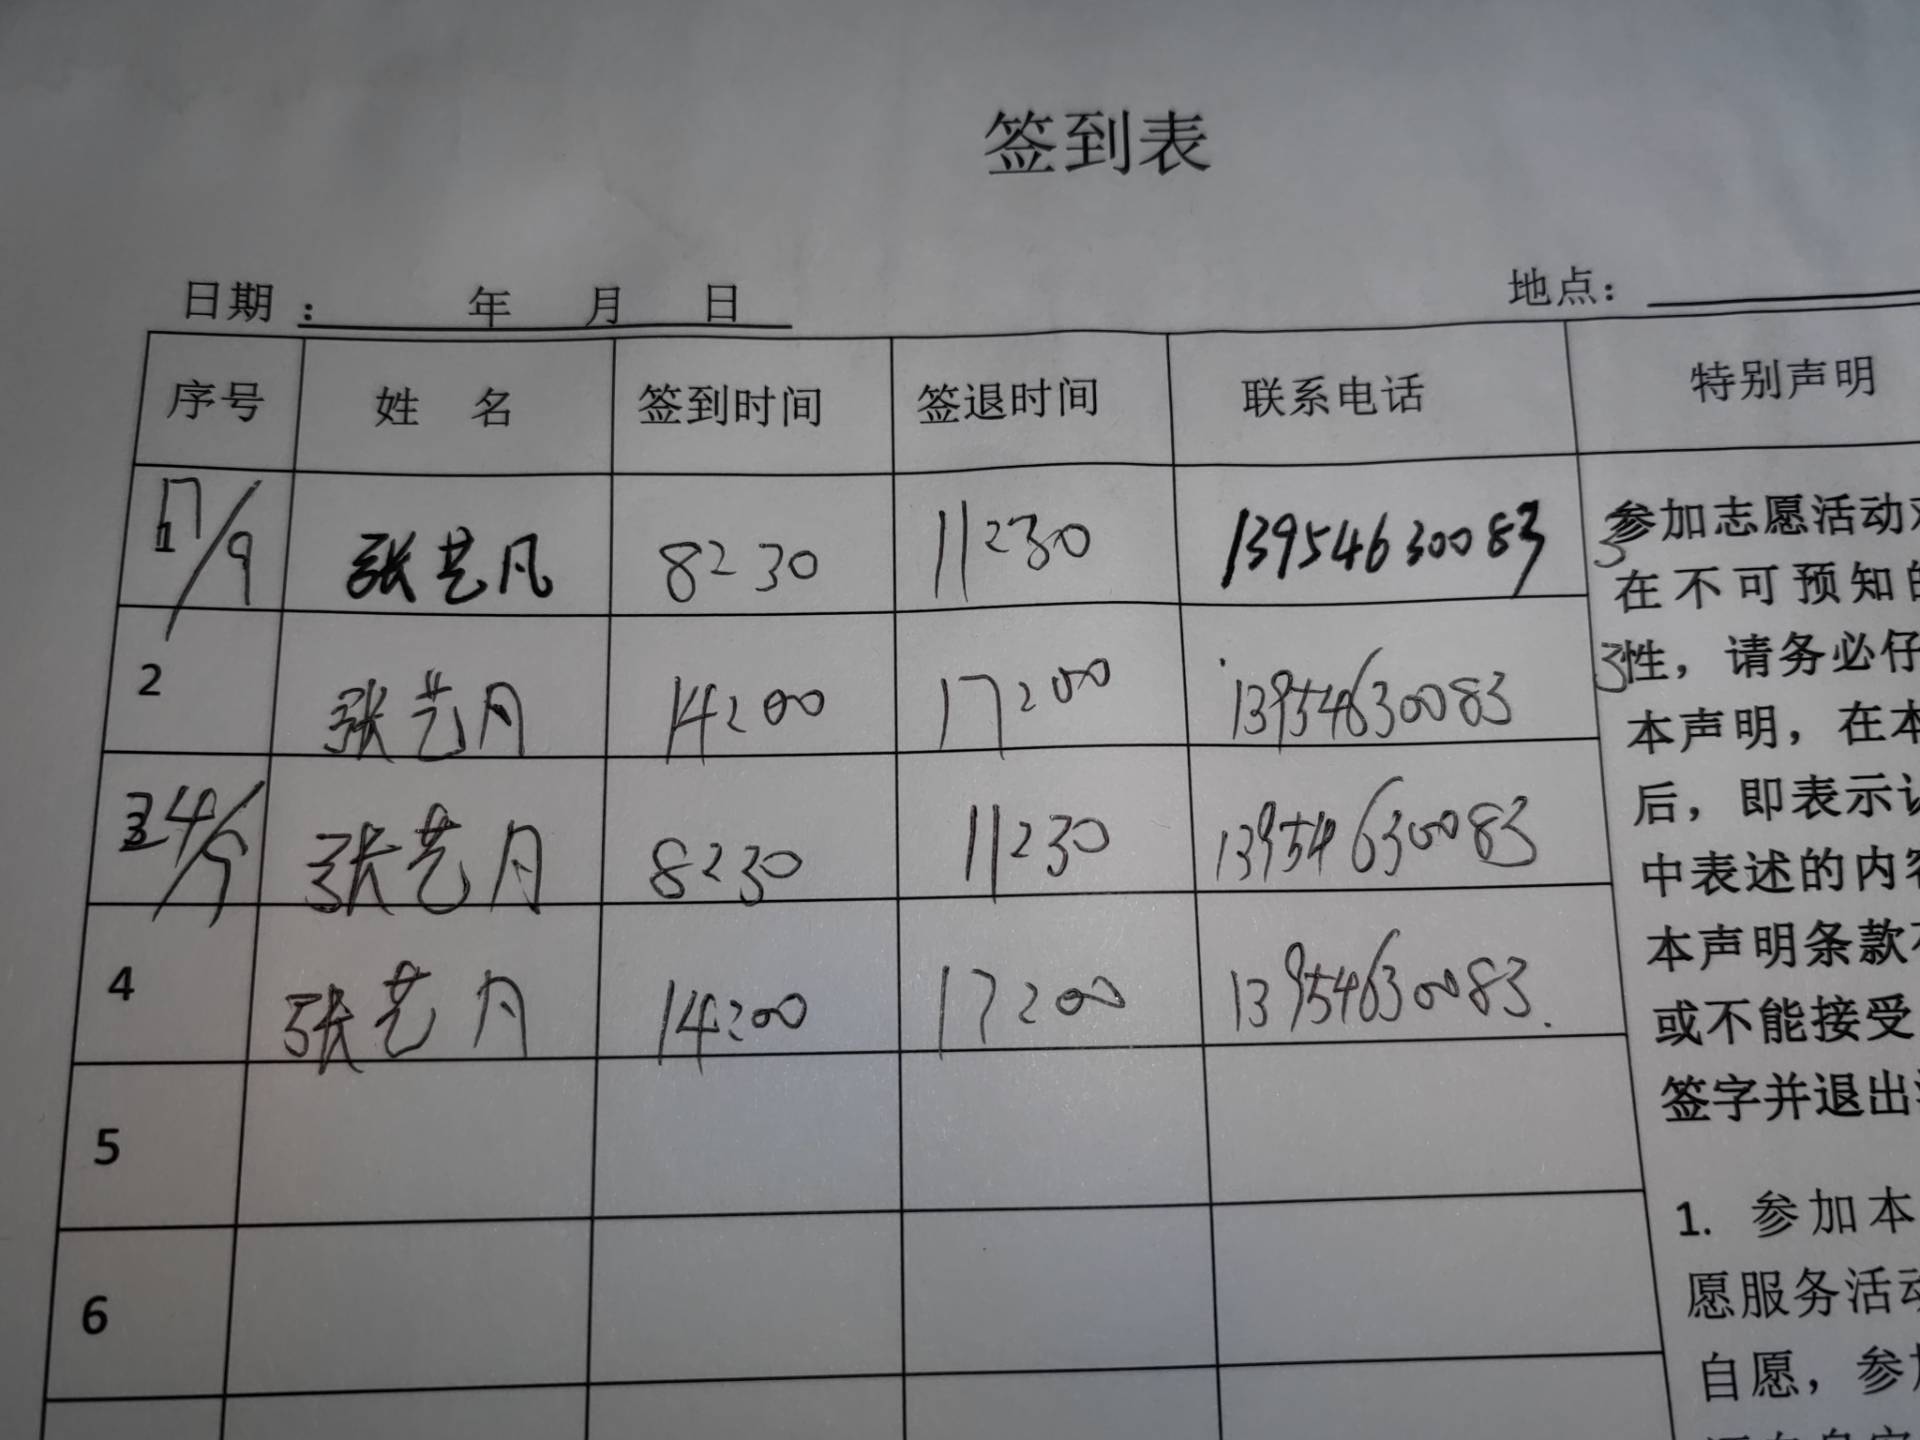 签到表
日期： 年 月 日 地点：
序号 姓 名 签到时间 签退时间 联系电话 特别声明
1 17/9 张艺凡 8:30 11:30 13954630083
2 张艺凡 14:00 17:00 13954630083
3 24/9 张艺凡 8:30 11:30 13954630083
4 张艺凡 14:00 17:00 13954630083.
5
6
参加志愿活动
在不可预知的
性，请务必仔
本声明，在本
后，即表示
中表述的内容
本声明条款
或不能接受
签字并退出
1. 参加本
愿服务活动
自愿，参加